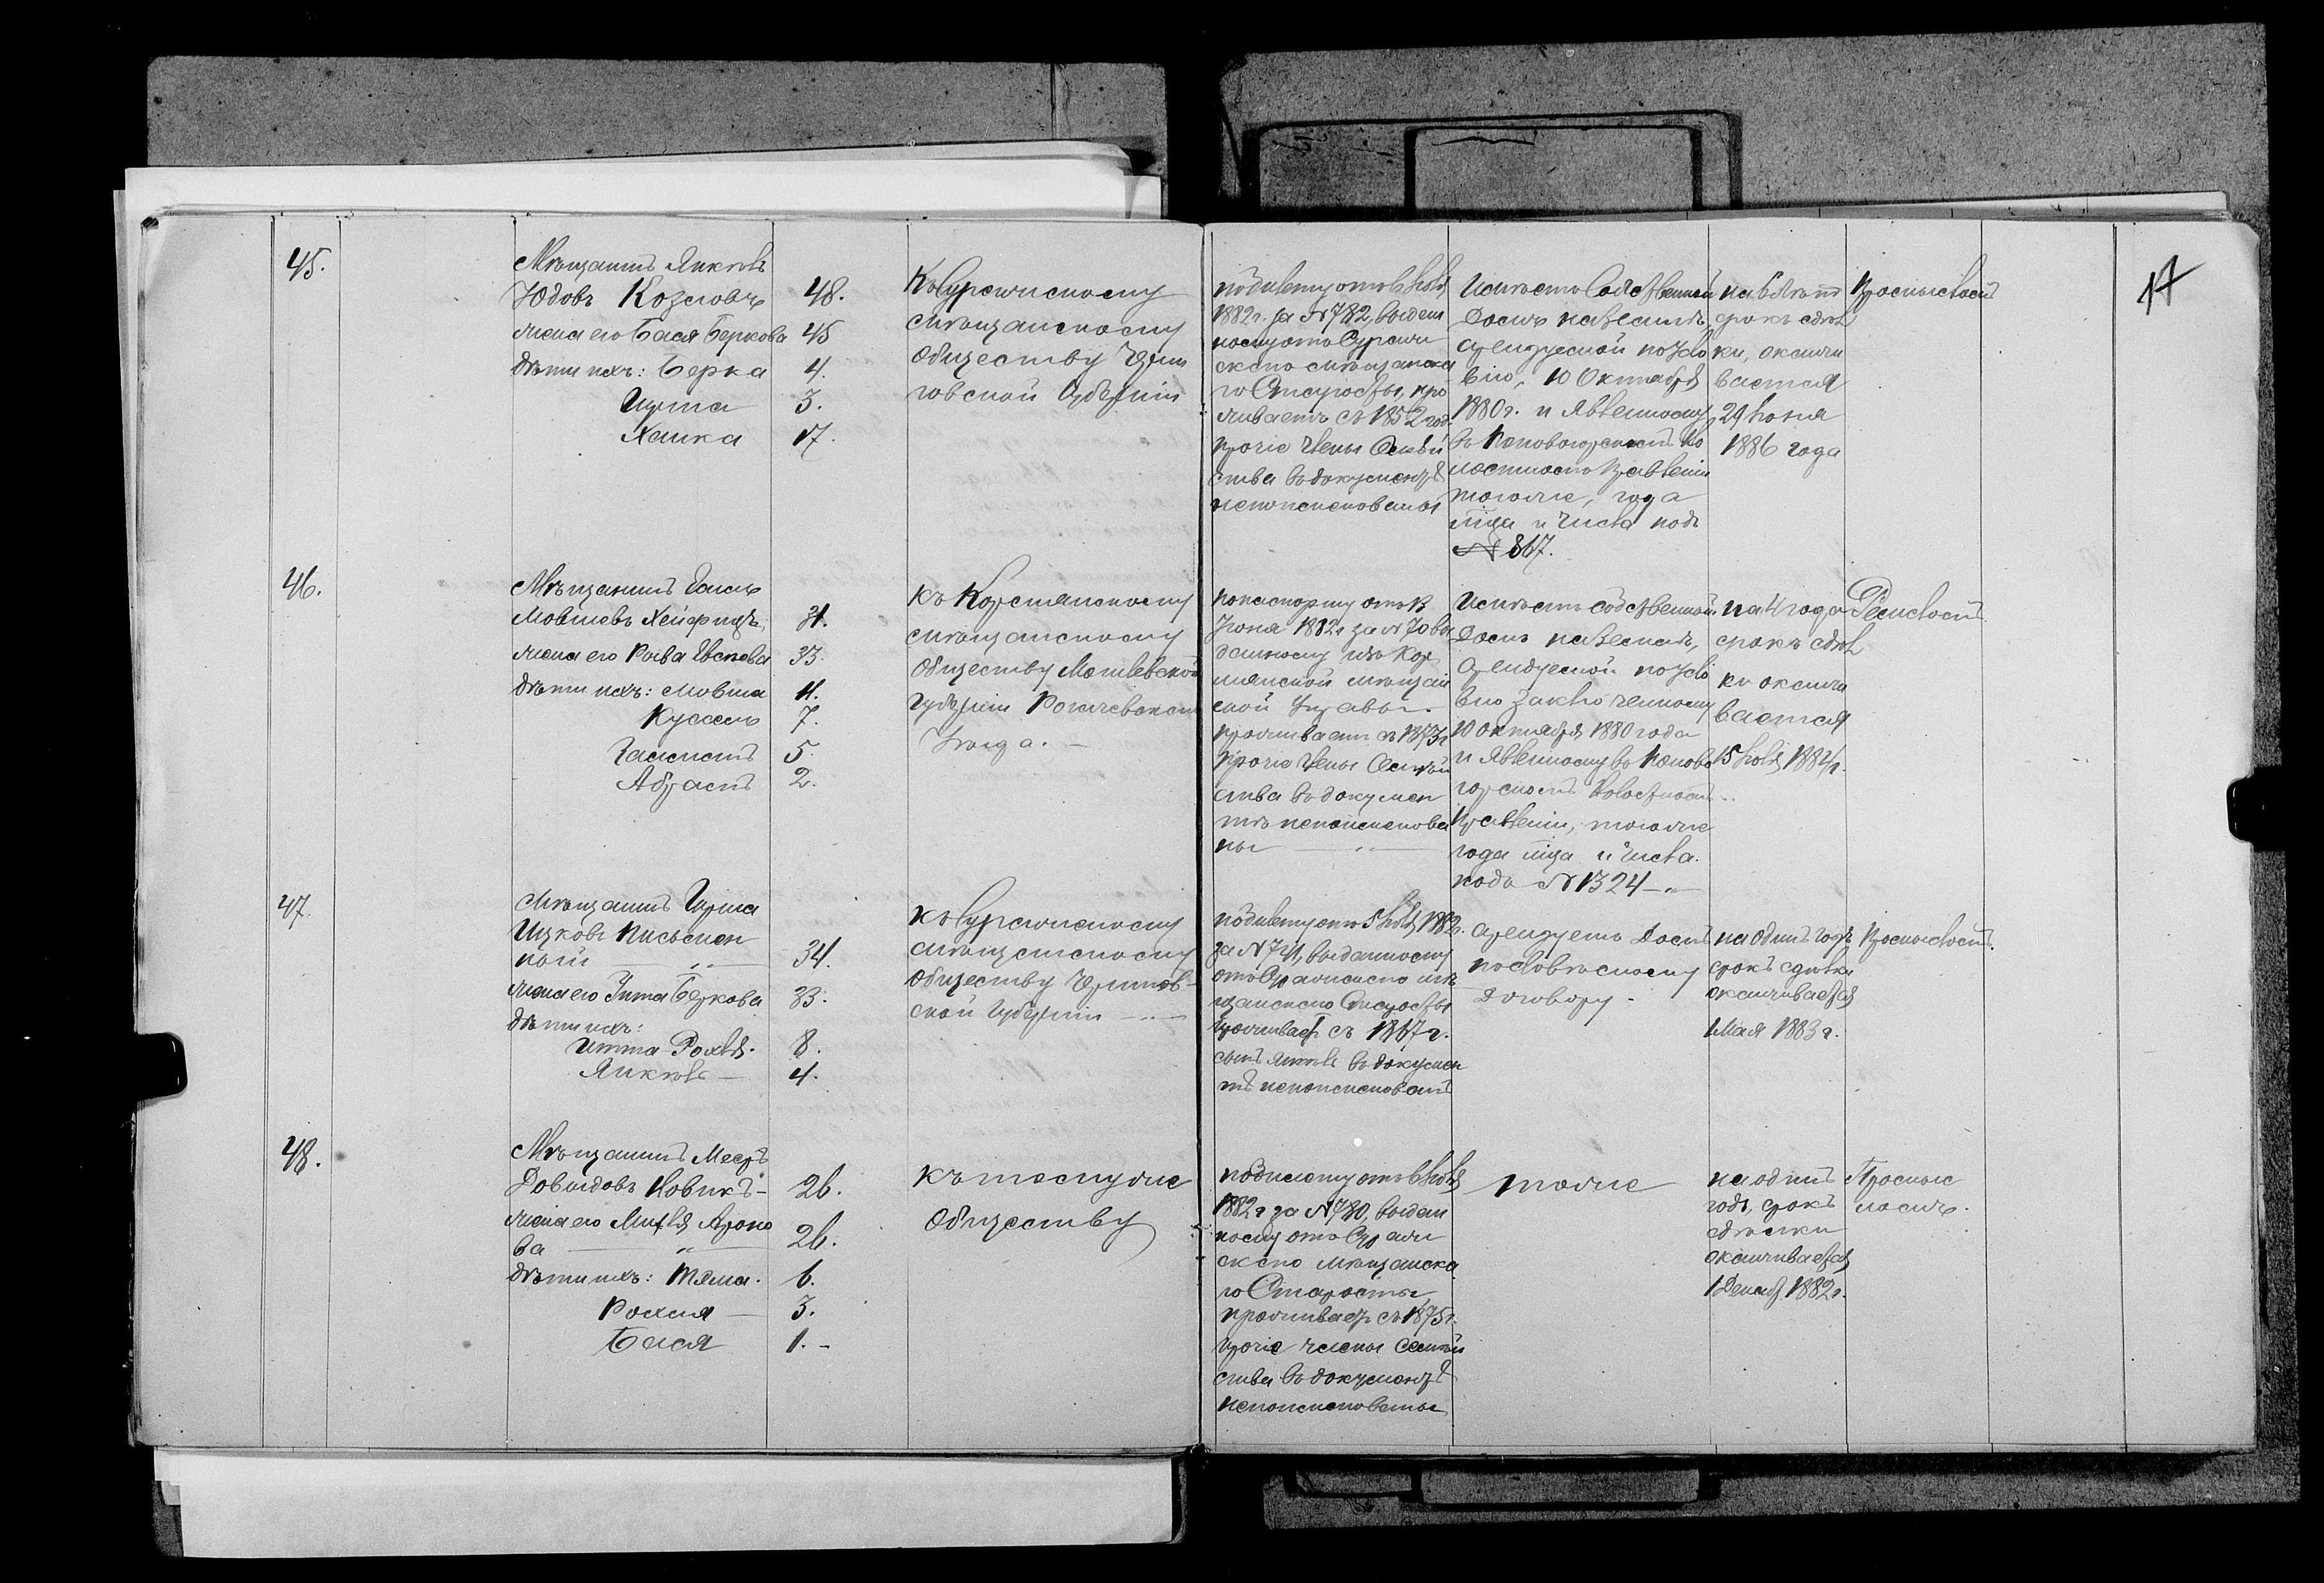 17
45.
Мѣщанинъ Янкель
Юдовъ Козловъ 48.
жена его Бася Беркова 45
дѣти ихъ: Берка 4.
Ицка 3.
Ханка 17.
Къ Суражскому
мѣщанскому
обществу Черни
говской Губерніи
по билету отъ 6 Іюля
1882 г. за № 782, выдан
ному отъ Суражс
скаго мѣщанска
го Старосты, про
живаетъ съ 1852 год.
прочіе члены Семѣй
ства въ документѣ
непоименованы
Имѣетъ Собственной
Домъ на Землѣ,
арендуемой по усло
вію, 10 Октября
1880 г. и явленному
въ Поповогорскомъ Во
лостномъ Правленіи
тогоже, года
м̃ца и числа подъ
№ 867.
на 6 лѣтъ
срокъ сдѣл
ки, оканчи
вается
29 Іюня
1886 года
46.
Мѣщанинъ
Мовшевъ Хейфицъ 31.
жена его 33.
дѣти ихъ: Мовша 11.
Кусель 7.
5.
Абрамъ 2.
Къ Кормянскому
мѣщанскому
обществу Могилевской
Губерніи Рогачевскаго
Уѣзда. —
по паспорту отъ 13
Іюня 1882 г. за № 70 вы
данному изъ Кор
мянской мѣщан
ской Управы.
проживаетъ съ 1873 г
прочіе члены Семѣй
ства въ докумен
тѣ непоименова
ны — " —
Имѣетъ собственной
Домъ на Землѣ,
арендуемой по усло
вію заключенному
10 октября 1880 года
и явленному въ Попово
горскомъ Волостномъ
Правленіи, тогоже
года м̃ца и числа.
подъ № 1324 — " —
на 4 года
срокъ сдѣл
ки оканчи
вается
15 Іюля 1884 г.
Ремесломъ
47.
Мѣщанинъ
Ицковъ Письмен
ный — " — 34.
жена его Беркова 33.
дѣти ихъ:
Итта-Рохля. 8.
Янкель — 4.
Къ Суражскому
мѣщанскому
обществу Чернигов-
ской Губерніи — " —
по билету отъ 5 Іюля 1882 г.
за № 741, выданному
отъ Суражскаго мѣ
щанскаго Старосты
проживаетъ съ 1867 г.
сынъ Янкель въ докумен
тѣ непоименованъ
арендуетъ Домъ
по словесному
Договору. —
на одинъ годъ
срокъ сдѣлки
оканчивается
1 Мая 1883 г.
48.
Мѣщанинъ Мееръ
Довыдовъ Новикъ — 26.
жена его Михля Ароно
ва — " — 26.
дѣти ихъ: 6.
3.
Бася 1. —
Къ томуже
обществу
по билету отъ 6 Іюля
1882 г за № 780, выдан
ному отъ Сураж
скаго мѣщанска
го Старосты,
проживаетъ съ 1875 г.
прочіе члены семѣй
ства въ документѣ
непоименованы
тоже
на одинъ
годъ, срокъ
сдѣлки
оканчивается
1 Декабр 1882 г.
Промыс
ломъ.